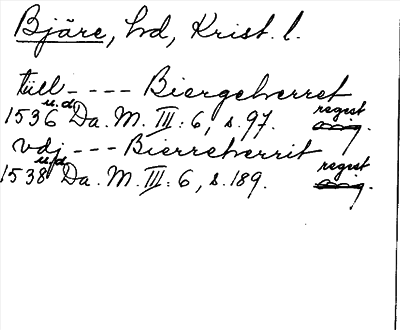 Bjäre, hd, Krist. l.
till - - - Biergeherret
1536 u.d. Da. M. III: 6, s. 97. regist
vdj - - - Bierreherrit
1538 u.d. Da. M. III: 6, s. 189. regist